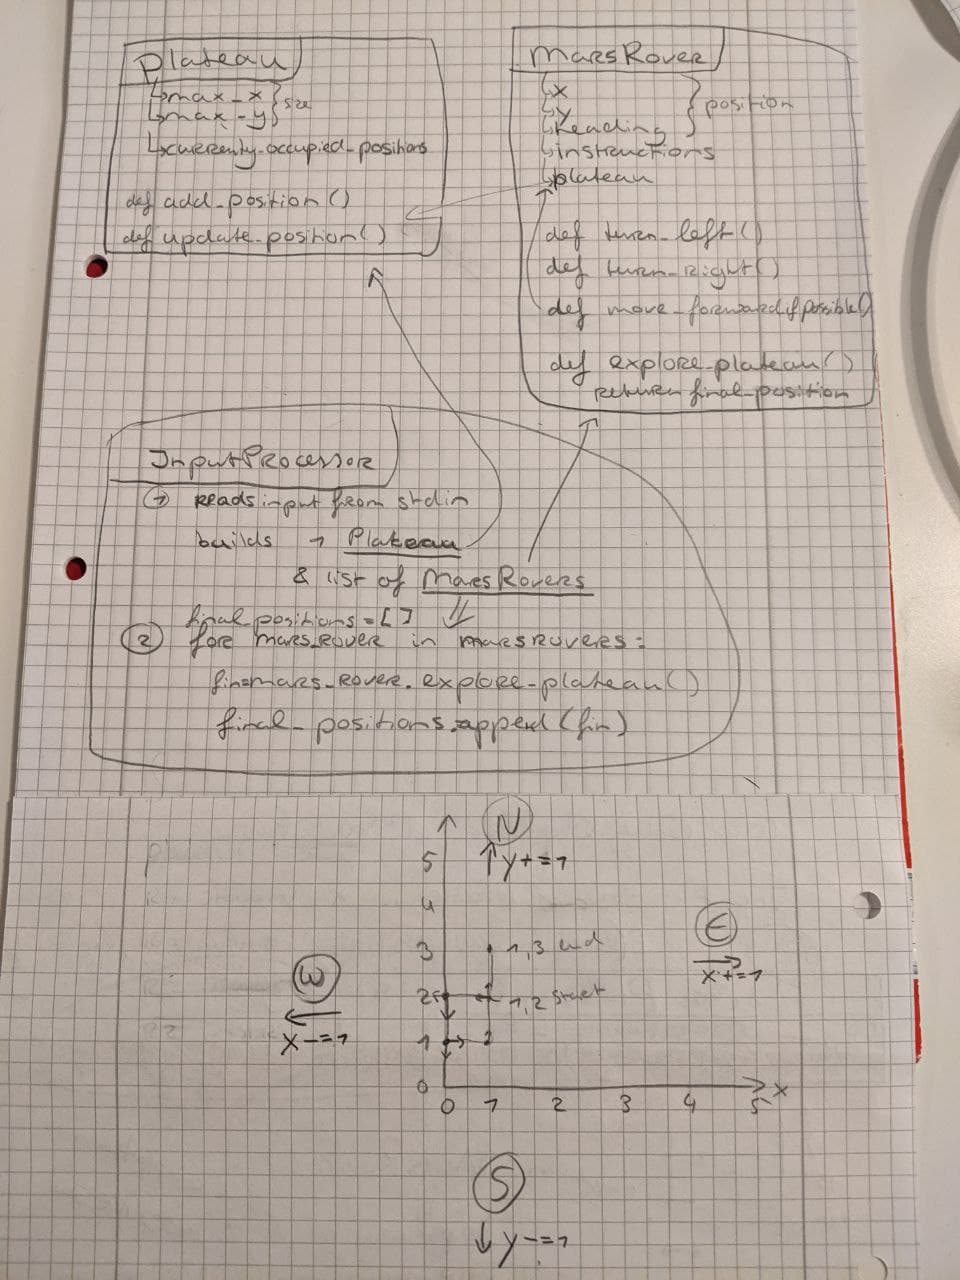 Plateau
↳max_x } size
↳max_y
↳currently_occupied_positions
def add_position()
def update_position()
MarsRover
↳x
↳y } position
↳heading
↳instructions
↳plateau
def turn_left()
def turn_right()
def move_forwardifpossible()
def explore_plateau()
return final_position
InputProcessor
① reads input from stdin
builds → Plateau
& list of MarsRovers
final_positions=[]
② for mars_rover in marsrovers:
fin=mars_rover.explore_plateau()
final_positions.append(fin)
N
5 ↑ y+=1
4
E
3 1,3 end
x+=1
W
2 1,2 start
x-=1
1
0 x
0 1 2 3 4 5
S
↓ y-=1